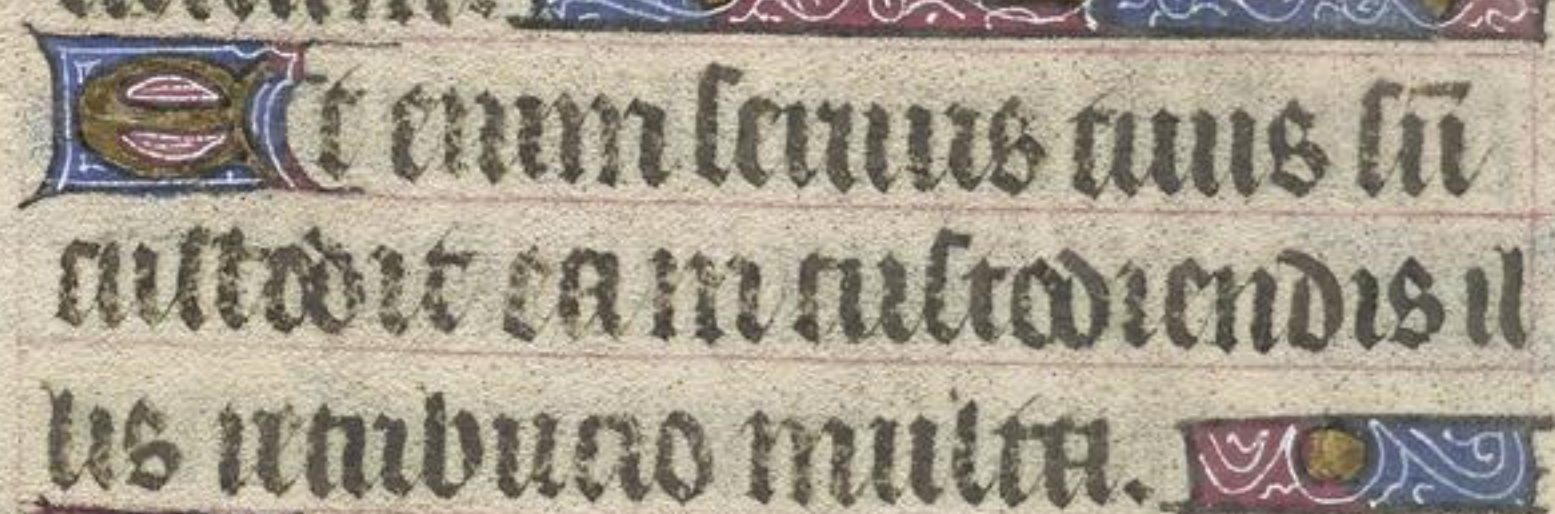 Et enim seruus tuus sū
custodit ea in custodiendis il
lis retribucio multa.